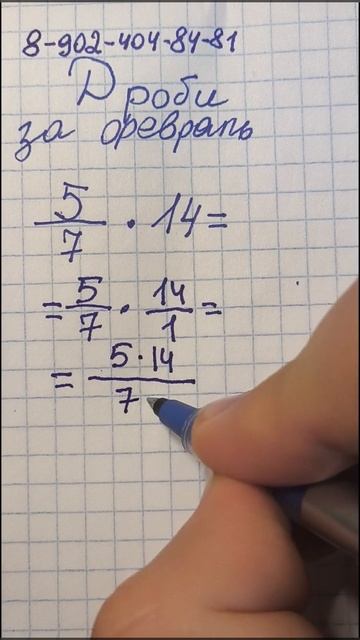 8-902-404-84-81
Дроби
за февраль
5/7 · 14=
=5/7 · 14/1=
=5·14/7